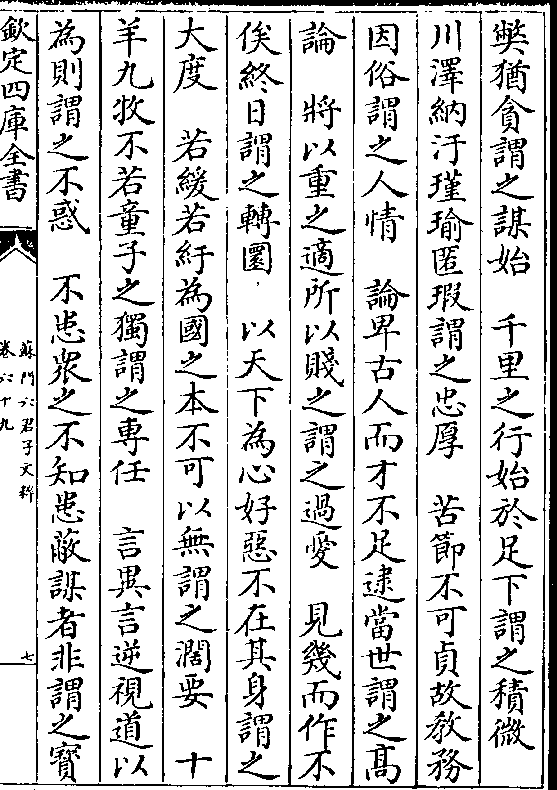 獘猶貪謂之謀始　千里之行始於足下謂之積微
川澤納汙瑾瑜匿瑕謂之忠厚　苦節不可貞故教務
因俗謂之人情　論卑古人而才不足逮當世謂之髙
論　將以重之適所以賤之謂之過愛　見幾而作不
俟終日謂之轉圜　以天下為心好惡不在其身謂之
大度　若緩若紆為國之本不可以無謂之濶要　十
羊九牧不若童子之獨謂之專任　言異言逆視道以
為則謂之不惑　不患衆之不知患蔽謀者非謂之寳
欽定四庫全書
蘇門六君子文粹
卷六十九
七